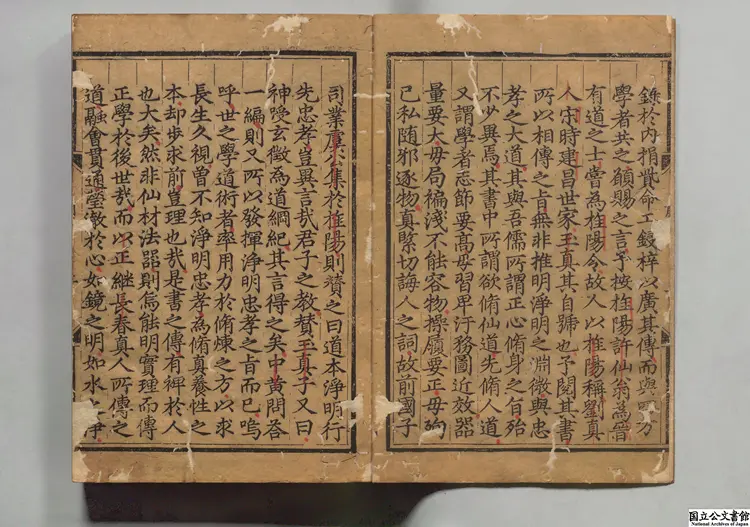 錄於內捐貲命工鋟梓以廣其傳而與四方
學者共之願賜之言予按旌陽許仙翁為晉
有道之士嘗為旌陽令故人以旌陽稱劉真
人宋時建昌世家玉真其自號也予閱其書
所以相傳之旨無非推明淨明之淵微與忠
孝之大道其與吾儒所謂正心脩身之旨殆
不少異焉其書中所謂欲脩仙道先脩人道
又謂學者志節要高毋習卑汙務圖近效器
量要大毋局褊淺不能容物操履要正毋殉
己私隨邪逐物真緊切誨人之詞故前國子
司業虞公集於旌陽則贊之曰道本淨明行
先忠孝豈異言哉君子之教贊玉真子又曰
神受玄徵為道綱紀其言得之矣中黃問答
一編則又所以發揮淨明忠孝之旨而已嗚
呼世之學道術者率用力於脩煉之方以求
長生久視曾不知淨明忠孝為脩真養性之
本却步求前豈理也哉是書之傳有裨於人
也大矣然非仙材法器則焉能明實理而傳
正學於後世哉而以正継長春真人所傳之
道融會貫通瑩徹於心如鏡之明如水之淨
国立公文書館
National Archives of Japan